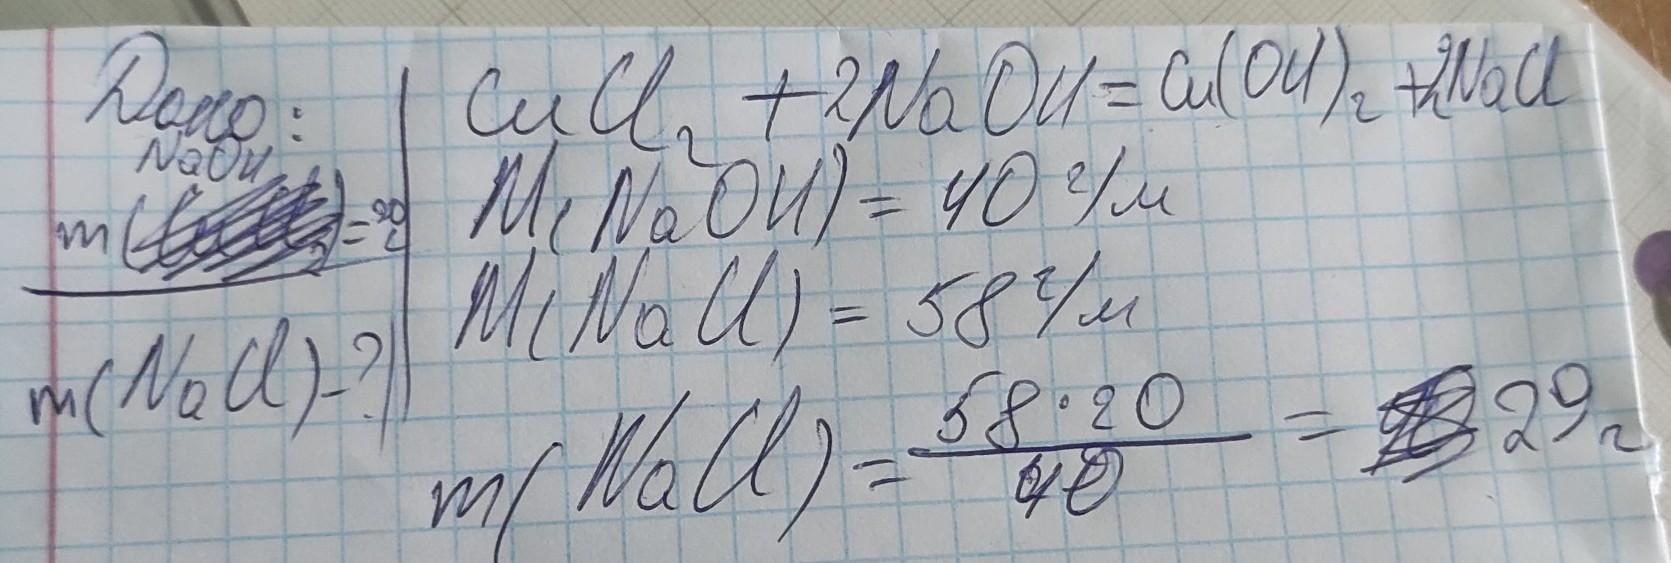 Дано:
NaOH
m( )=20г
m(NaCl)-?
CuCl₂ + 2NaOH = Cu(OH)₂ + 2NaCl
M(NaOH) = 40 г/м
M(NaCl) = 58 г/м
m(NaCl) = 58·20 / 40 = 29г